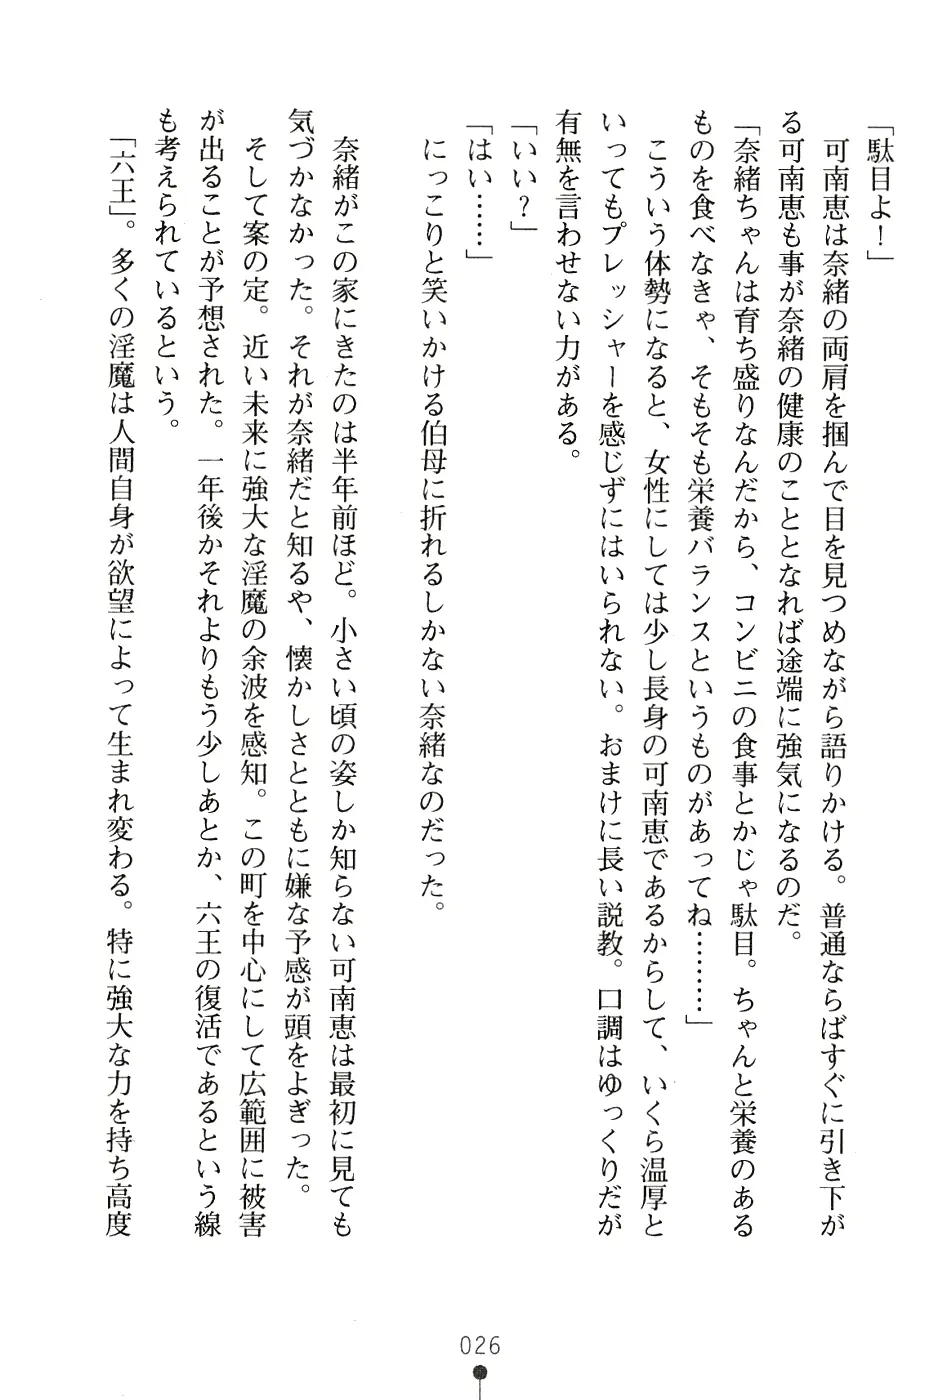 「駄目よ！」
　可南恵は奈緒の両肩を掴んで目を見つめながら語りかける。普通ならばすぐに引き下が
る可南恵も事が奈緒の健康のこととなれば途端に強気になるのだ。
「奈緒ちゃんは育ち盛りなんだから、コンビニの食事とかじゃ駄目。ちゃんと栄養のある
ものを食べなきゃ、そもそも栄養バランスというものがあってね………」
　こういう体勢になると、女性にしては少し長身の可南恵であるからして、いくら温厚と
いってもプレッシャーを感じずにはいられない。おまけに長い説教。口調はゆっくりだが
有無を言わせない力がある。
「いい？」
「はい……」
　にっこりと笑いかける伯母に折れるしかない奈緒なのだった。
　奈緒がこの家にきたのは半年前ほど。小さい頃の姿しか知らない可南恵は最初に見ても
気づかなかった。それが奈緒だと知るや、懐かしさとともに嫌な予感が頭をよぎった。
　そして案の定。近い未来に強大な淫魔の余波を感知。この町を中心にして広範囲に被害
が出ることが予想された。一年後かそれよりもう少しあとか、六王の復活であるという線
も考えられているという。
　「六王」。多くの淫魔は人間自身が欲望によって生まれ変わる。特に強大な力を持ち高度
026